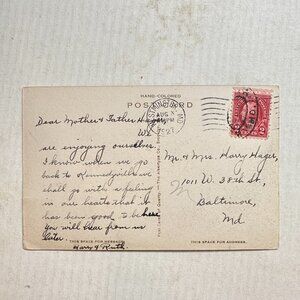 HAND-COLORED
POST CARD
AUG
1927
MD
Dear Mother & Father Hager,
We
are enjoying ourselves.
I know when we go
back to Kennedyville we
shall go with a feeling
in our hearts that it
has been good to be here
You will hear from us
later.
Harry & Ruth.
THIS SPACE FOR MESSAGE
Mr. & Mrs. Harry Hager,
1011 W. 38th St,
Baltimore,
Md.
THIS SPACE FOR ADDRESS.